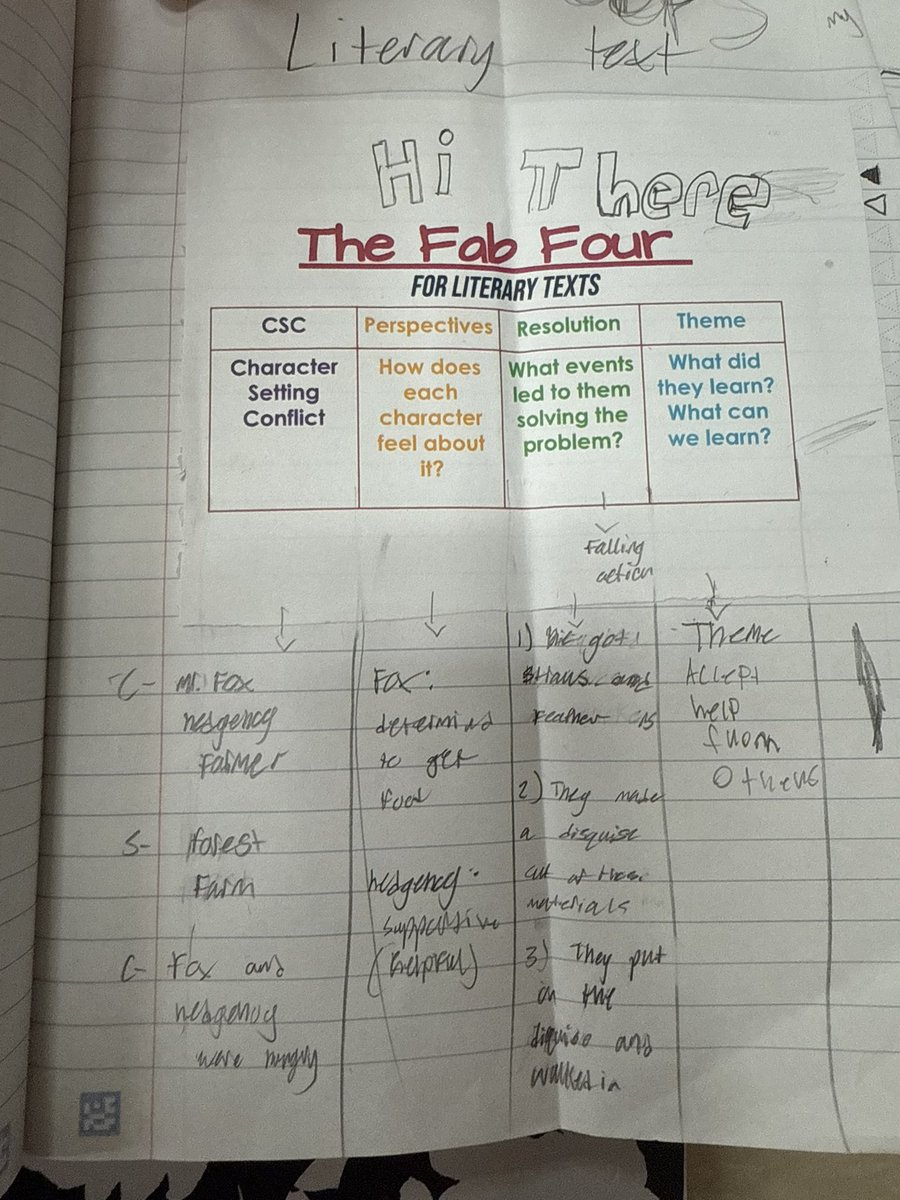 Literary text
my
Hi There
The Fab Four
FOR LITERARY TEXTS
CSC
Character
Setting
Conflict
Perspectives
How does
each
character
feel about
it?
Resolution
What events
led to them
solving the
problem?
Theme
What did
they learn?
What can
we learn?
Falling
action
C- Mr. Fox
Farmer
S- forest
Farm
C- Fox and
were hungry
Fox:
to get
food
supportive
(helpful)
1) got
and
Feather
2) They made
a disguise
out of these
materials
3) They put
on the
disguise and
walked in
Theme
Accept
help
from
Others